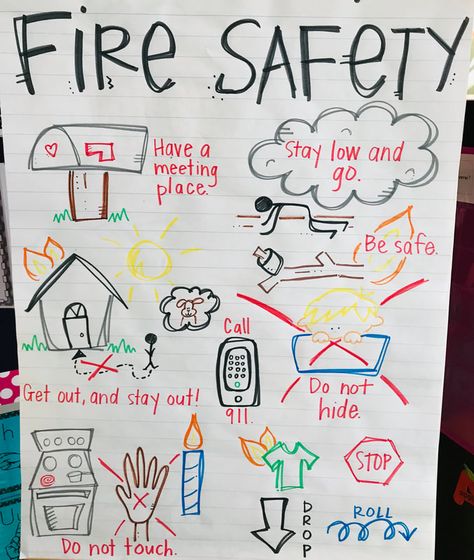 FIRE SAFETY
Have a
meeting
place.
Stay low and
go.
Be safe.
Call
911.
Get out, and stay out!
Do not
hide.
Do not touch.
STOP
DROP
ROLL